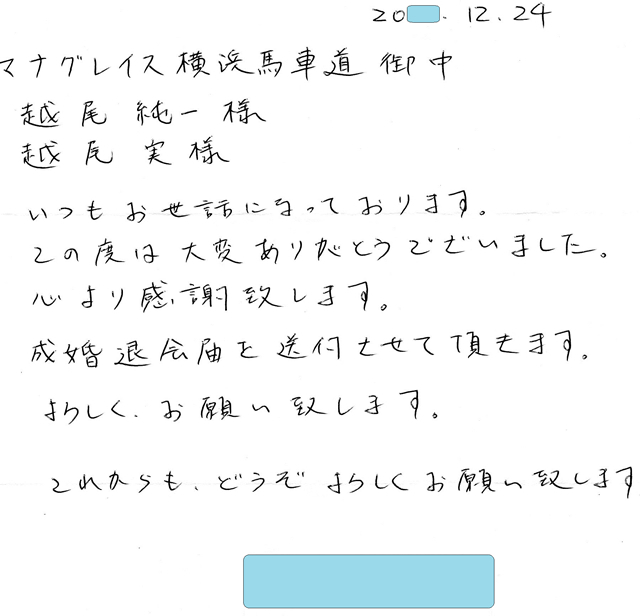 20 . 12. 24
マナグレイス横浜馬車道 御中
越尾 純一 様
越尾 実 様
いつもお世話になっております。
この度は大変ありがとうございました。
心より感謝致します。
成婚退会届を送付させて頂きます。
よろしく、お願い致します。
これからも、どうぞよろしくお願い致します